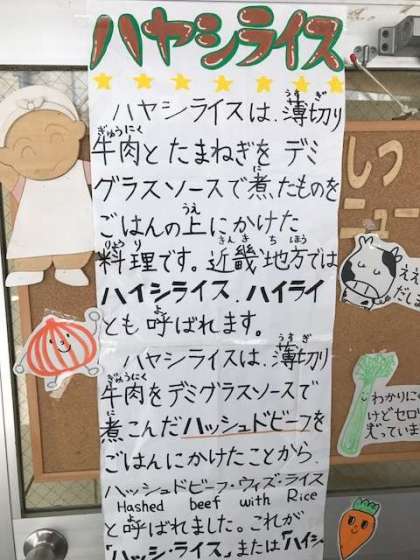 ハヤシライス
ハヤシライスは、薄切り
牛肉とたまねぎをデミ
グラスソースで煮たものを
ごはんの上にかけた
料理です。近畿地方では
ハイシライス、ハイライ
とも呼ばれます。
ハヤシライスは、薄切り
牛肉をデミグラスソースで
煮こんだハッシュドビーフを
ごはんにかけたことから、
ハッシュドビーフ・ウィズ・ライス
Hashed beef with Rice
と呼ばれました。これが
「ハッシ・ライス」または「ハイシ
しつ
ニュー
ええ
だし
わかりに
けどセロ
入っていま